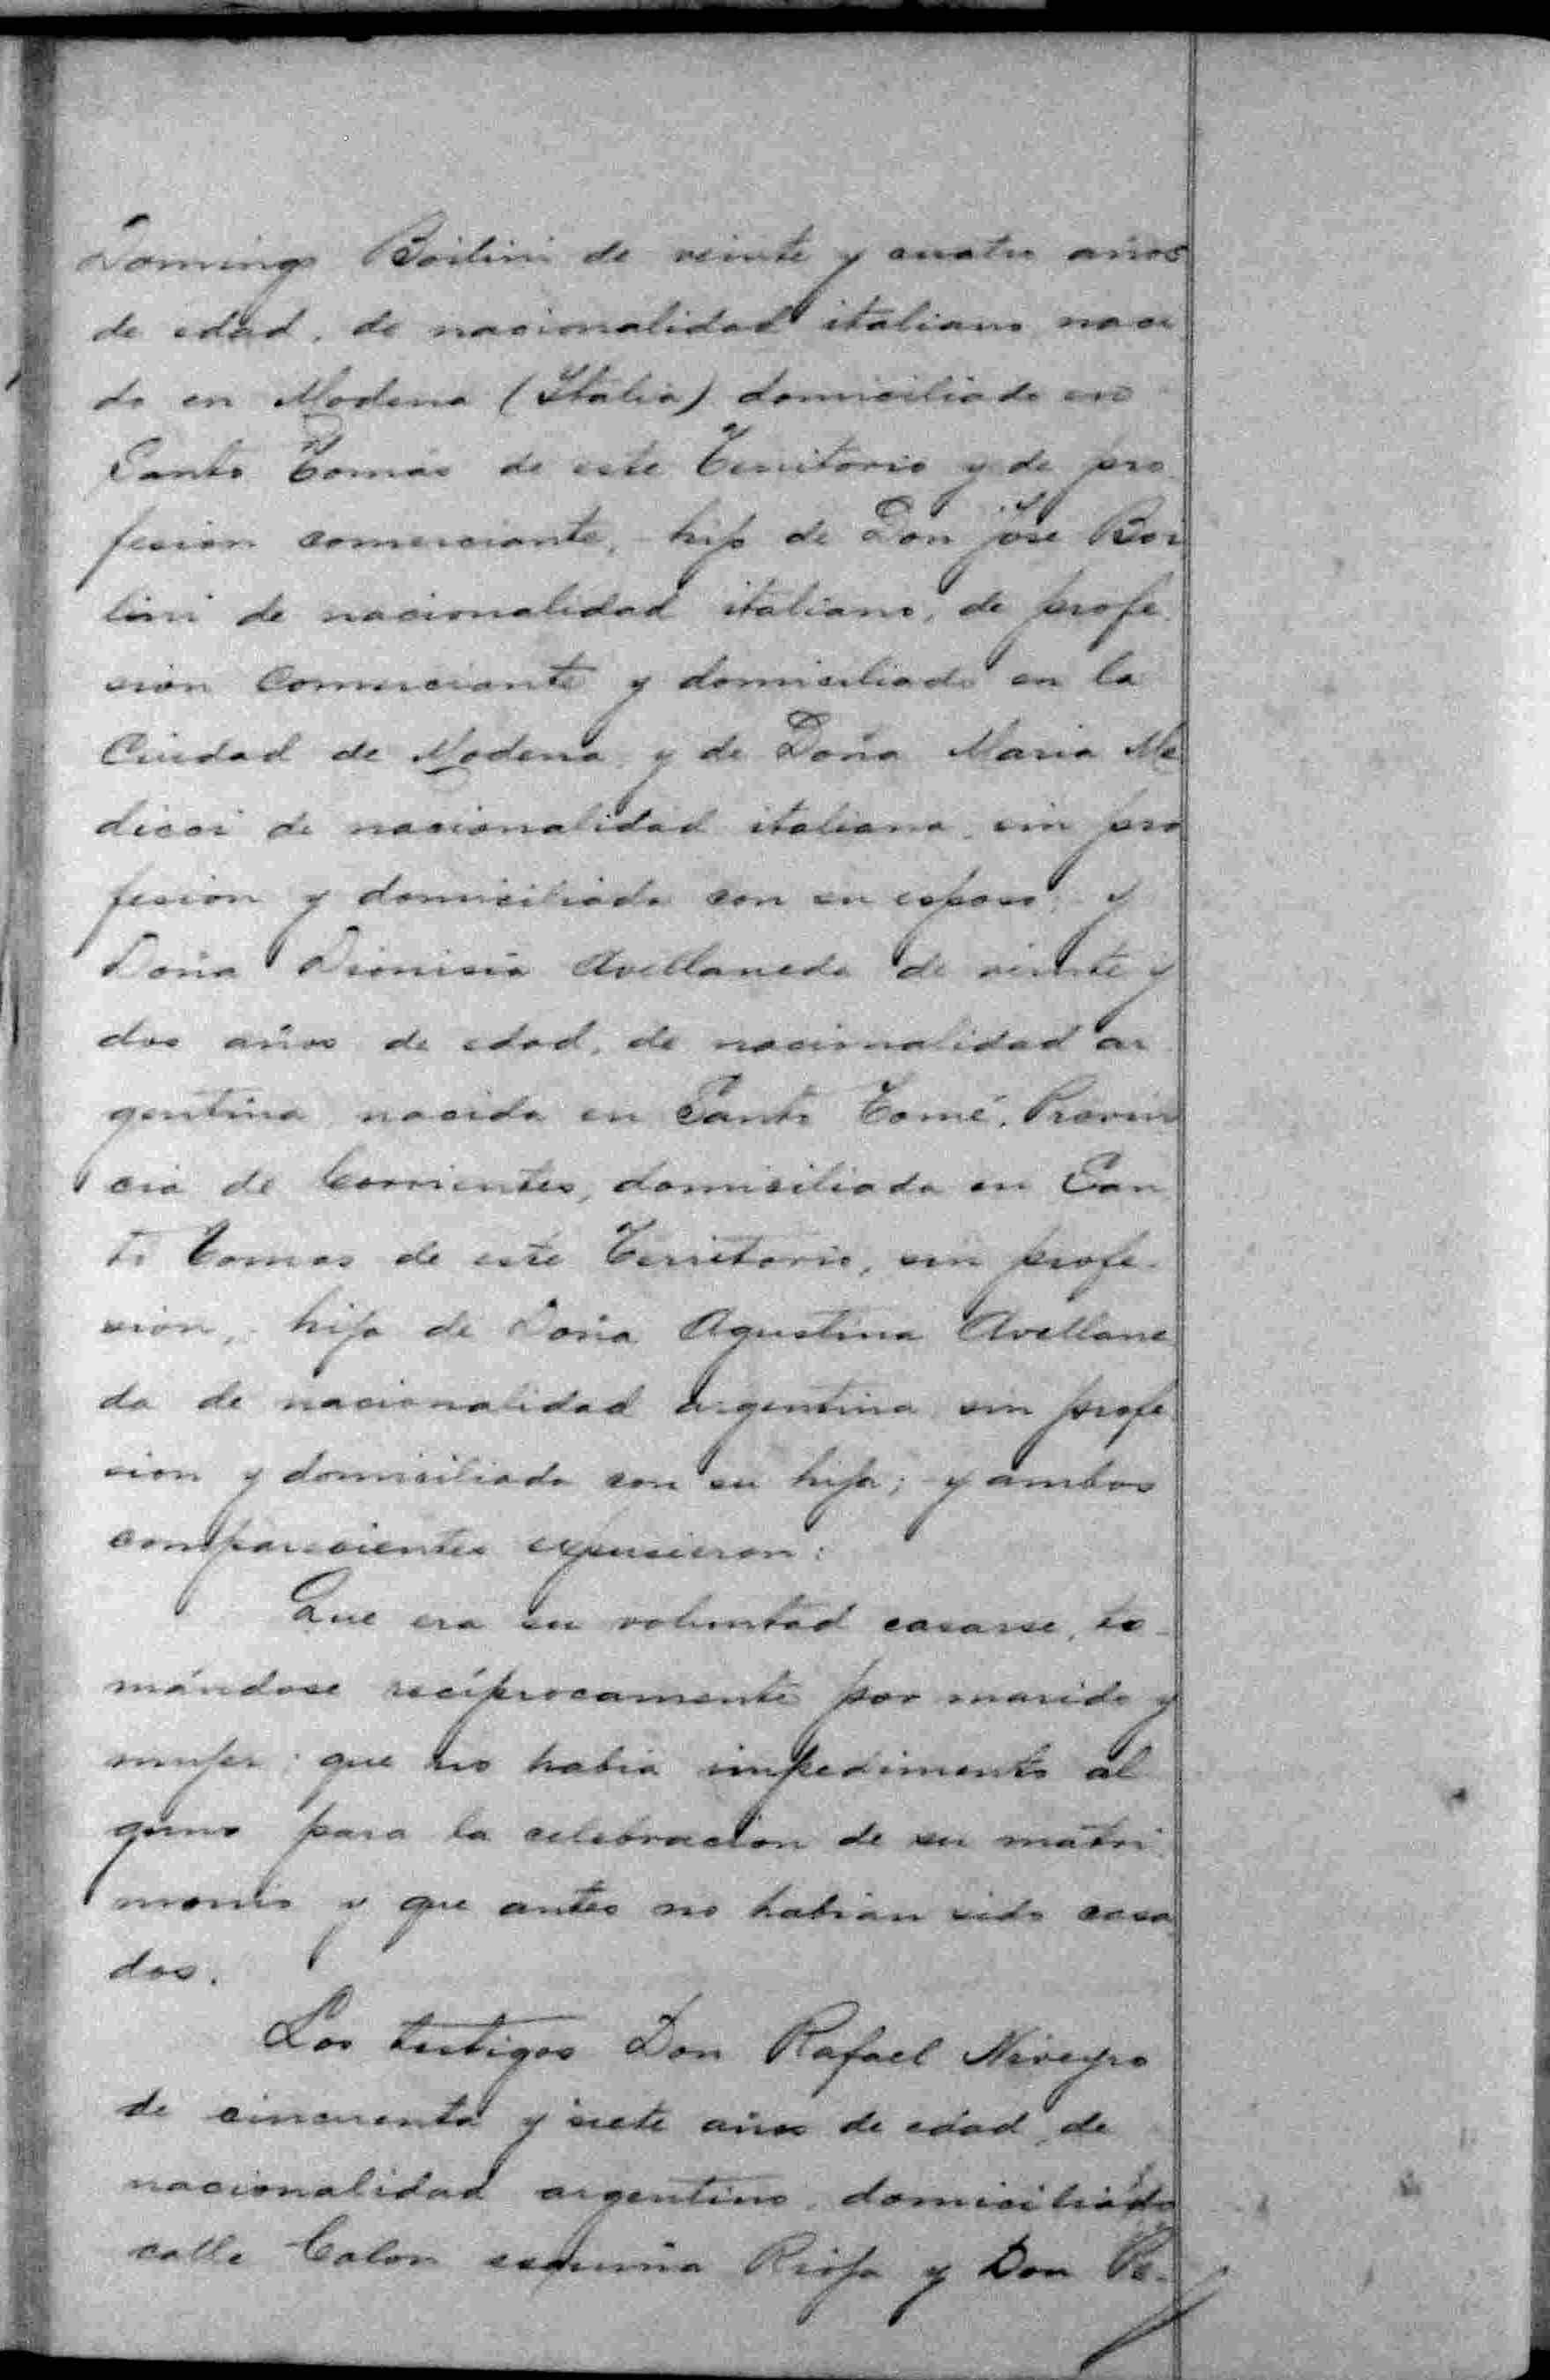 Domingo Boilini de veinte y cuatro años
de edad, de nacionalidad italiano naci
do en Modena (Italia) domiciliado en
Santo Tomás de este Territorio y de pro
fesion comerciante, hijo de Don José Boi
lini de nacionalidad italiano, de profe
sion Comerciante y domiciliado en la
Ciudad de Modena y de Doña Maria Me
dicci de nacionalidad italiana sin pro
fesion y domiciliada con su esposo; y
Doña Dionisia Avellaneda de veinte y
dos años de edad, de nacionalidad ar
gentina nacida en Santo Tomé, Provin
cia de Corrientes, domiciliada en San
to Tomas de este Territorio, sin profe-
sion, hija de Doña Agustina Avellane
da de nacionalidad argentina sin profe
sion y domiciliada con su hija; y ambos
comparecientes expusieron:
Que era su voluntad casarse, to-
mándose recíprocamente por marido y
mujer; que no habia impedimento al
guno para la celebracion de su matri
monio y que antes no habian sido casa
dos.
Los testigos Don Rafael Niveyro
de cincuenta y siete años de edad, de
nacionalidad argentino, domiciliado
calle Colon esquina Rioja y Don Pe-